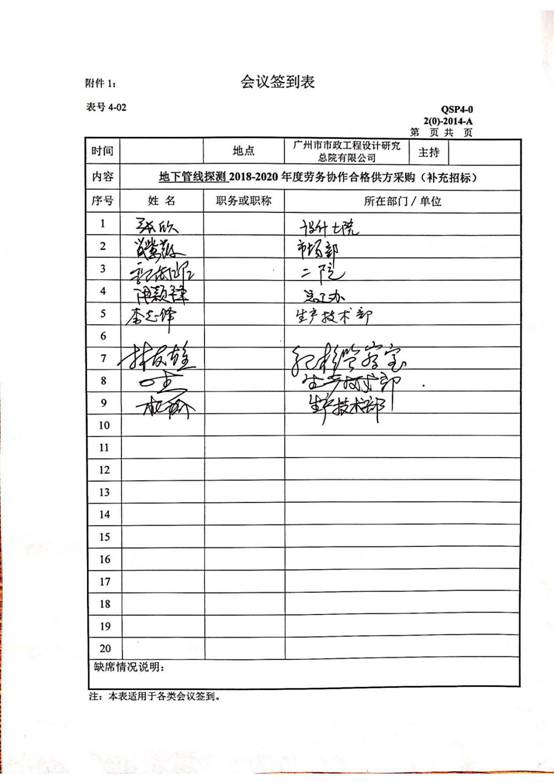 附件 1：
会议签到表
表号 4-02
QSP4-0
2(0)-2014-A
第 页 共 页
时间 地点 广州市市政工程设计研究总院有限公司 主持
内容 地下管线探测 2018-2020 年度劳务协作合格供方采购（补充招标）
序号 姓 名 职务或职称 所在部门／单位
1 设计七院
2 市场部
3 二院
4 总工办
5 李志锋 生产技术部
6
7 纪检监察室
8 生产技术部
9 生产技术部
10
11
12
13
14
15
16
17
18
19
20
缺席情况说明：
注：本表适用于各类会议签到。